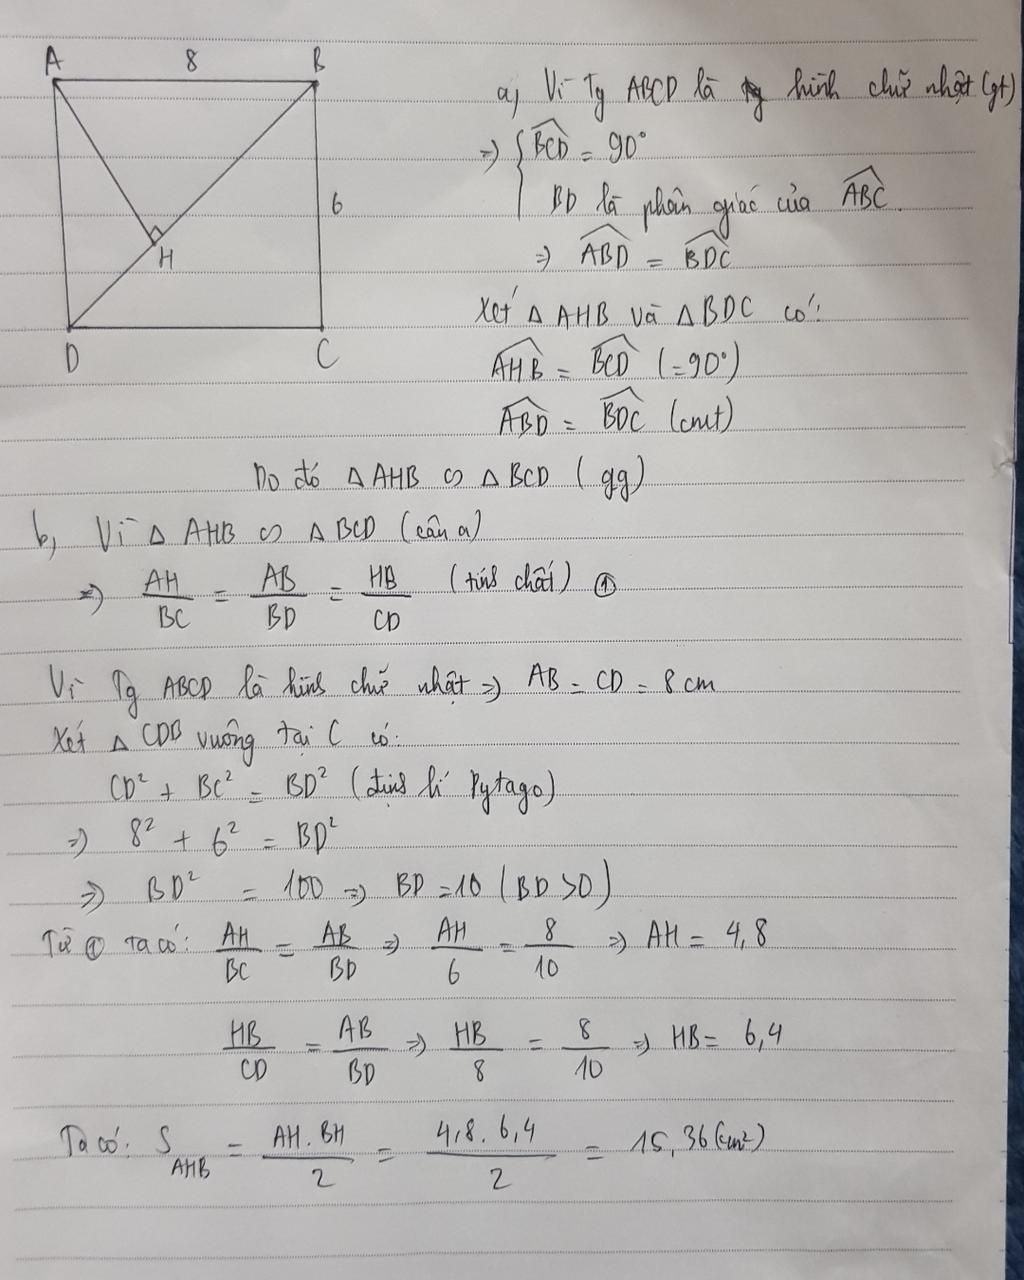 A 8 B
6
H
D C
a, Vì Tg ABCD là hình chữ nhật (gt)
=> { \widehat{BCD} = 90°
BD là phân giác của \widehat{ABC}.
=> \widehat{ABD} = \widehat{BDC}
Xét Δ AHB và Δ BDC có:
\widehat{AHB} = \widehat{BCD} (=90°)
\widehat{ABD} = \widehat{BDC} (cmt)
Do đó Δ AHB ∽ Δ BCD (gg)
b, Vì Δ AHB ∽ Δ BCD (câu a)
=> AH/BC = AB/BD = HB/CD (tính chất) ①
Vì Tg ABCD là hình chữ nhật => AB = CD = 8 cm
Xét Δ CDB vuông tại C có:
CD² + BC² = BD² (định lí Pytago)
=> 8² + 6² = BD²
=> BD² = 100 => BD = 10 (BD > 0)
Từ ① ta có: AH/BC = AB/BD => AH/6 = 8/10 => AH = 4,8
HB/CD = AB/BD => HB/8 = 8/10 => HB = 6,4
Ta có: S_{AHB} = AH.BH/2 = 4,8.6,4/2 = 15,36 (cm²)